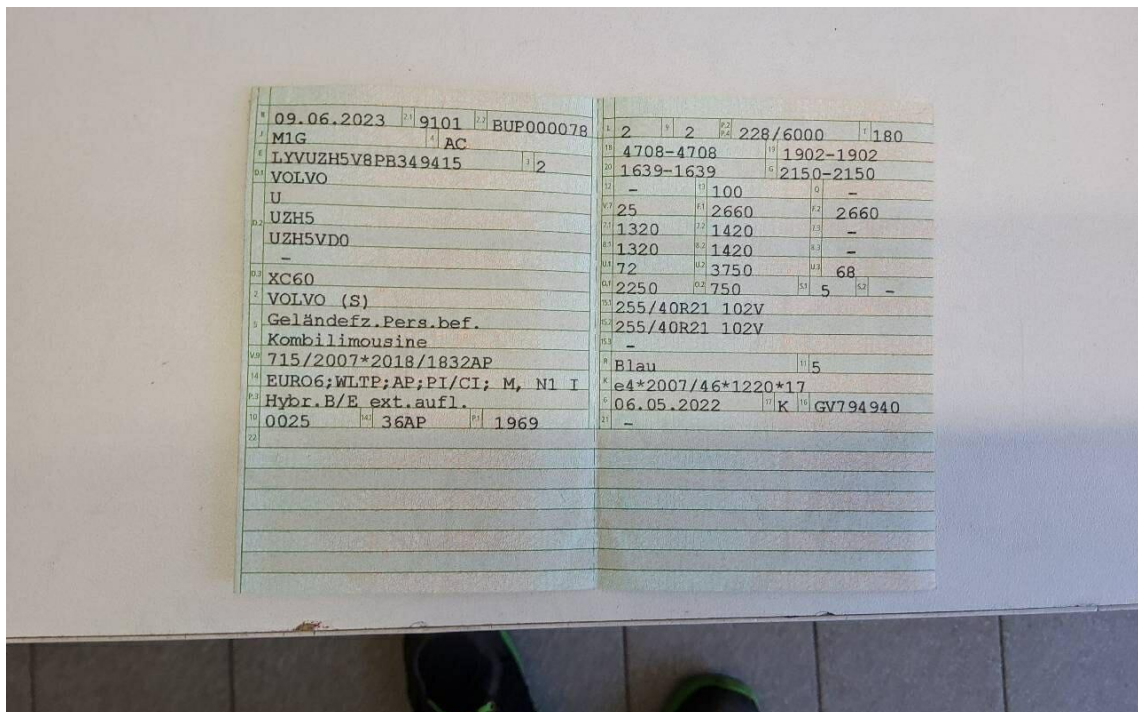 B 09.06.2023 2.1 9101 2.2 BUP000078
J M1G 4 AC
E LYVUZH5V8PB349415 3 2
D.1 VOLVO
U
D.2 UZH5
UZH5VD0
–
D.3 XC60
2 VOLVO (S)
5 Geländefz.Pers.bef.
Kombilimousine
V.9 715/2007*2018/1832AP
14 EURO6;WLTP;AP;PI/CI; M, N1 I
P.3 Hybr.B/E ext.aufl.
10 0025 14.1 36AP P.1 1969
22
L 2 9 2 P.2 P.4 228/6000 T 180
18 4708-4708 19 1902-1902
20 1639-1639 G 2150-2150
12 – 13 100 Q –
V.7 25 F.1 2660 F.2 2660
7.1 1320 7.2 1420 7.3 –
8.1 1320 8.2 1420 8.3 –
U.1 72 U.2 3750 U.3 68
O.1 2250 O.2 750 S.1 5 S.2 –
15.1 255/40R21 102V
15.2 255/40R21 102V
15.3 –
R Blau 11 5
K e4*2007/46*1220*17
6 06.05.2022 17 K 16 GV794940
21 –